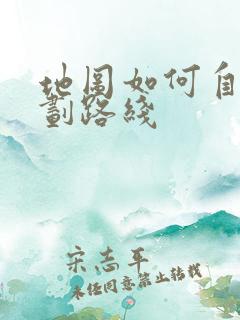 地图如何自
劃路綫
宋志平
未经同意禁止转载